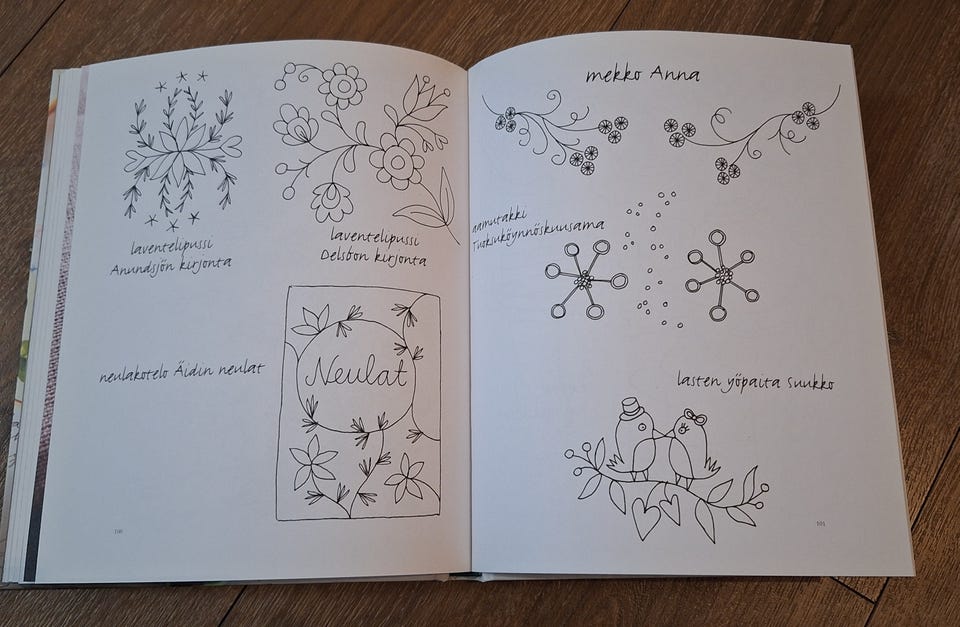 laventelipussi
Anundsjön kirjonta
laventelipussi
Delsbon kirjonta
neulakotelo Äidin neulat
Neulat
100
mekko Anna
aamutakki
Tuoksuköynnöskuusama
lasten yöpaita Suukko
101